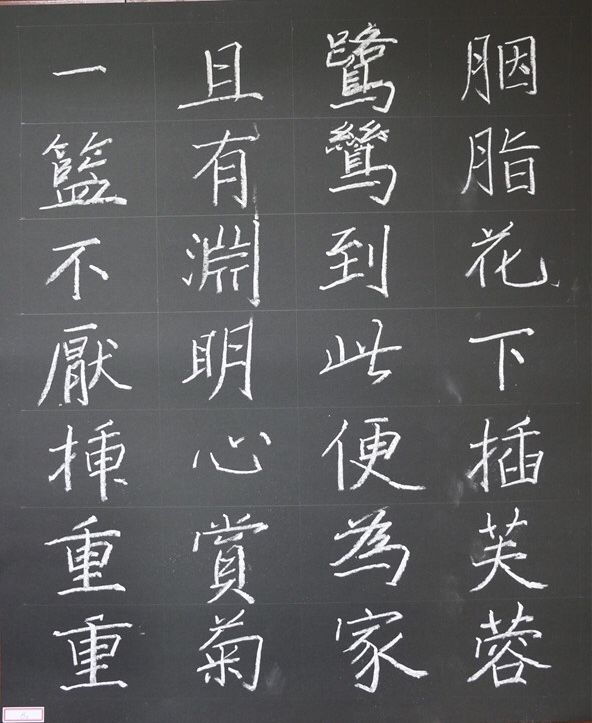 胭脂花下插芙蓉
鷺鷥到此便為家
且有淵明心賞菊
一籃不厭挿重重